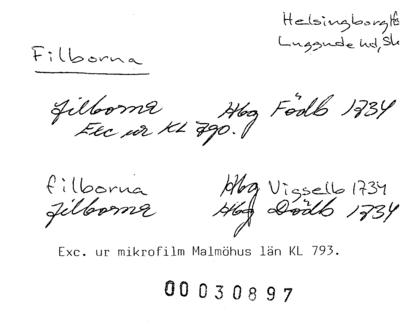 Helsingborg
Luggude hd, Sk
Filborna
filborna Hbg Födb 1734
Exc ur KL 790.
filborna Hbg Vigselb 1734
filborna Hbg Dödb 1734
Exc. ur mikrofilm Malmöhus län KL 793.
00030897